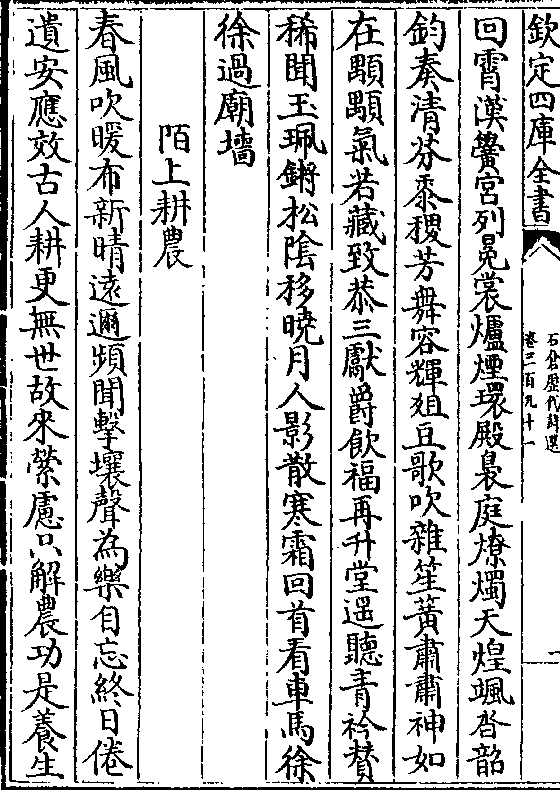 欽定四庫全書
石倉歷代詩選
卷三百九十一
一
回霄漢黌宮列冕裳爐煙環殿裊庭燎燭天煌颯沓韶
鈞奏清芬黍稷芳舞容輝俎豆歌吹雜笙簧肅肅神如
在顒顒氣若藏致恭三獻爵飲福再升堂遥聽青衿賛
稀聞玉珮鏘松陰移曉月人影散寒霜回首看車馬徐
徐過廟墻
陌上耕農
春風吹暖布新晴遠邇頻聞擊壤聲為樂自忘終日倦
遺安應效古人耕更無世故來縈慮只解農功是養生